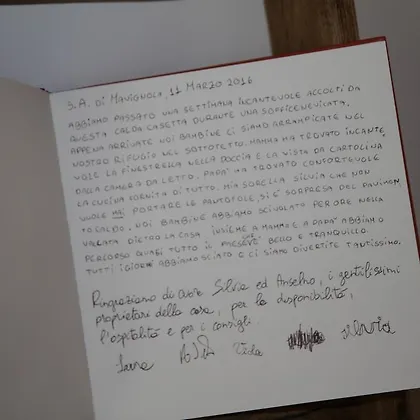 S. A. DI MAVIGNOLA, 11 MARZO 2016
ABBIAMO PASSATO UNA SETTIMANA INCANTEVOLE ACCOLTI DA
QUESTA CALDA CASETTA DURANTE UNA SOFFICE NEVICATA.
APPENA ARRIVATE NOI BAMBINE CI SIAMO ARRAMPICATE NEL
NOSTRO RIFUGIO NEL SOTTOTETTO. MAMMA HA TROVATO INCANTE_
VOLE LA FINESTRELLA NELLA DOCCIA E LA VISTA DA CARTOLINA
DALLA CAMERA DA LETTO. PAPÀ HA TROVATO CONFORTEVOLE
LA CUCINA FORNITA DI TUTTO. MIA SORELLA SILVIA CHE NON
VUOLE MAI PORTARE LE PANTOFOLE, SI È SORPRESA DEL PAVIMEN_
TO CALDO. NOI BAMBINE ABBIAMO SCIVOLATO PER ORE NELLA
VALLATA DIETRO LA CASA. INSIEME A MAMMA E A PAPÀ ABBIAMO
PERCORSO QUASI TUTTO IL PAESE BELLO E TRANQUILLO.
TUTTI I GIORNI ABBIAMO SCIATO E CI SIAMO DIVERTITE TANTISSIMO.
Ringraziamo di cuore Silvia ed Anselmo, i gentilissimi
proprietari della casa, per la disponibilità,
l'ospitalità e per i consigli.
Silvia